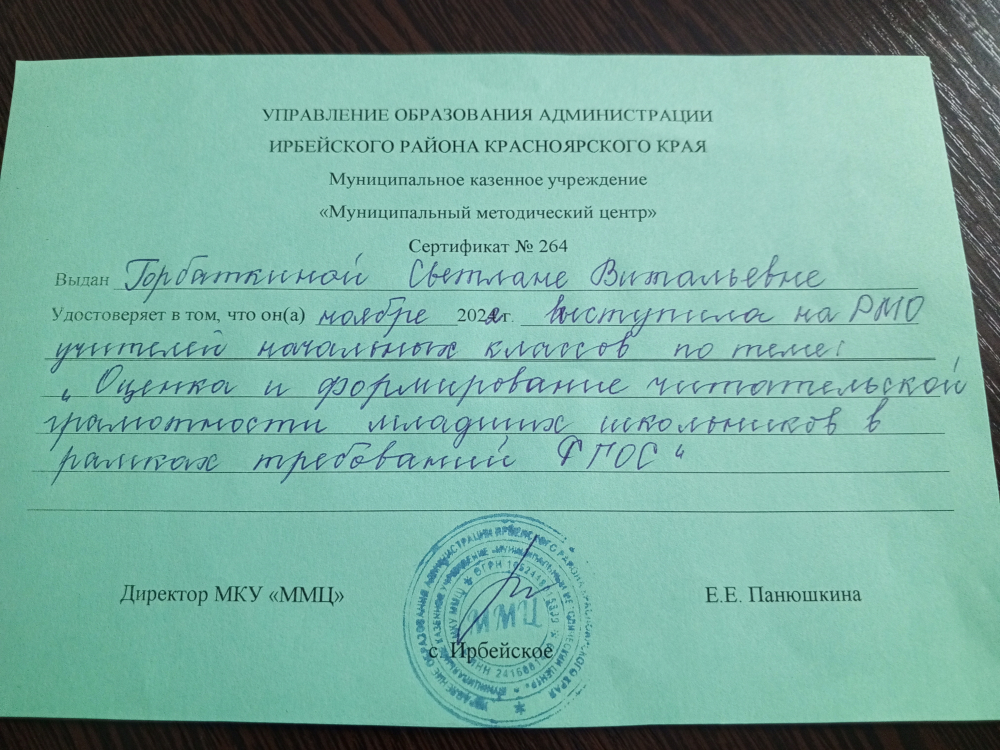 УПРАВЛЕНИЕ ОБРАЗОВАНИЯ АДМИНИСТРАЦИИ
ИРБЕЙСКОГО РАЙОНА КРАСНОЯРСКОГО КРАЯ
Муниципальное казенное учреждение
«Муниципальный методический центр»
Сертификат № 264
Выдан Горбаткиной Светлане Витальевне
Удостоверяет в том, что он(а) ноябре г. выступила на РМО
учителей начальных классов по теме:
„Оценка и формирование читательской
грамотности младших школьников в
рамках требований ФГОС“
Директор МКУ «ММЦ» Е.Е. Панюшкина
ММЦ
с. Ирбейское